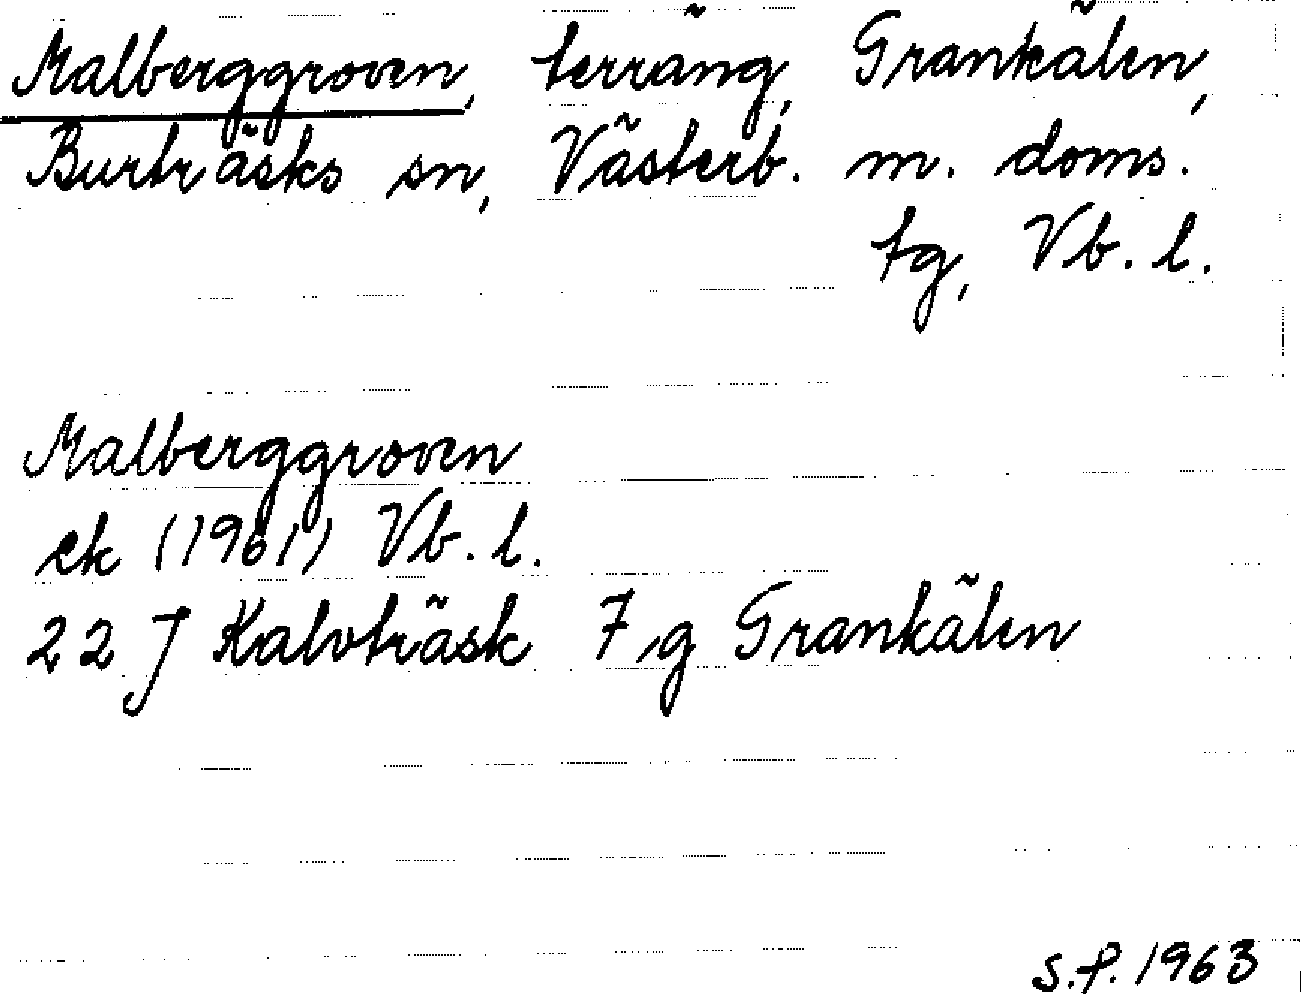 Malberggroven, terräng, Grankälen,
Burträsks sn, Västerb. m. doms.
tg, Vb. l.
Malberggroven
ek (1961) Vb. l.
22 J Kalvträsk 7 g Grankälen
S.P. 1963